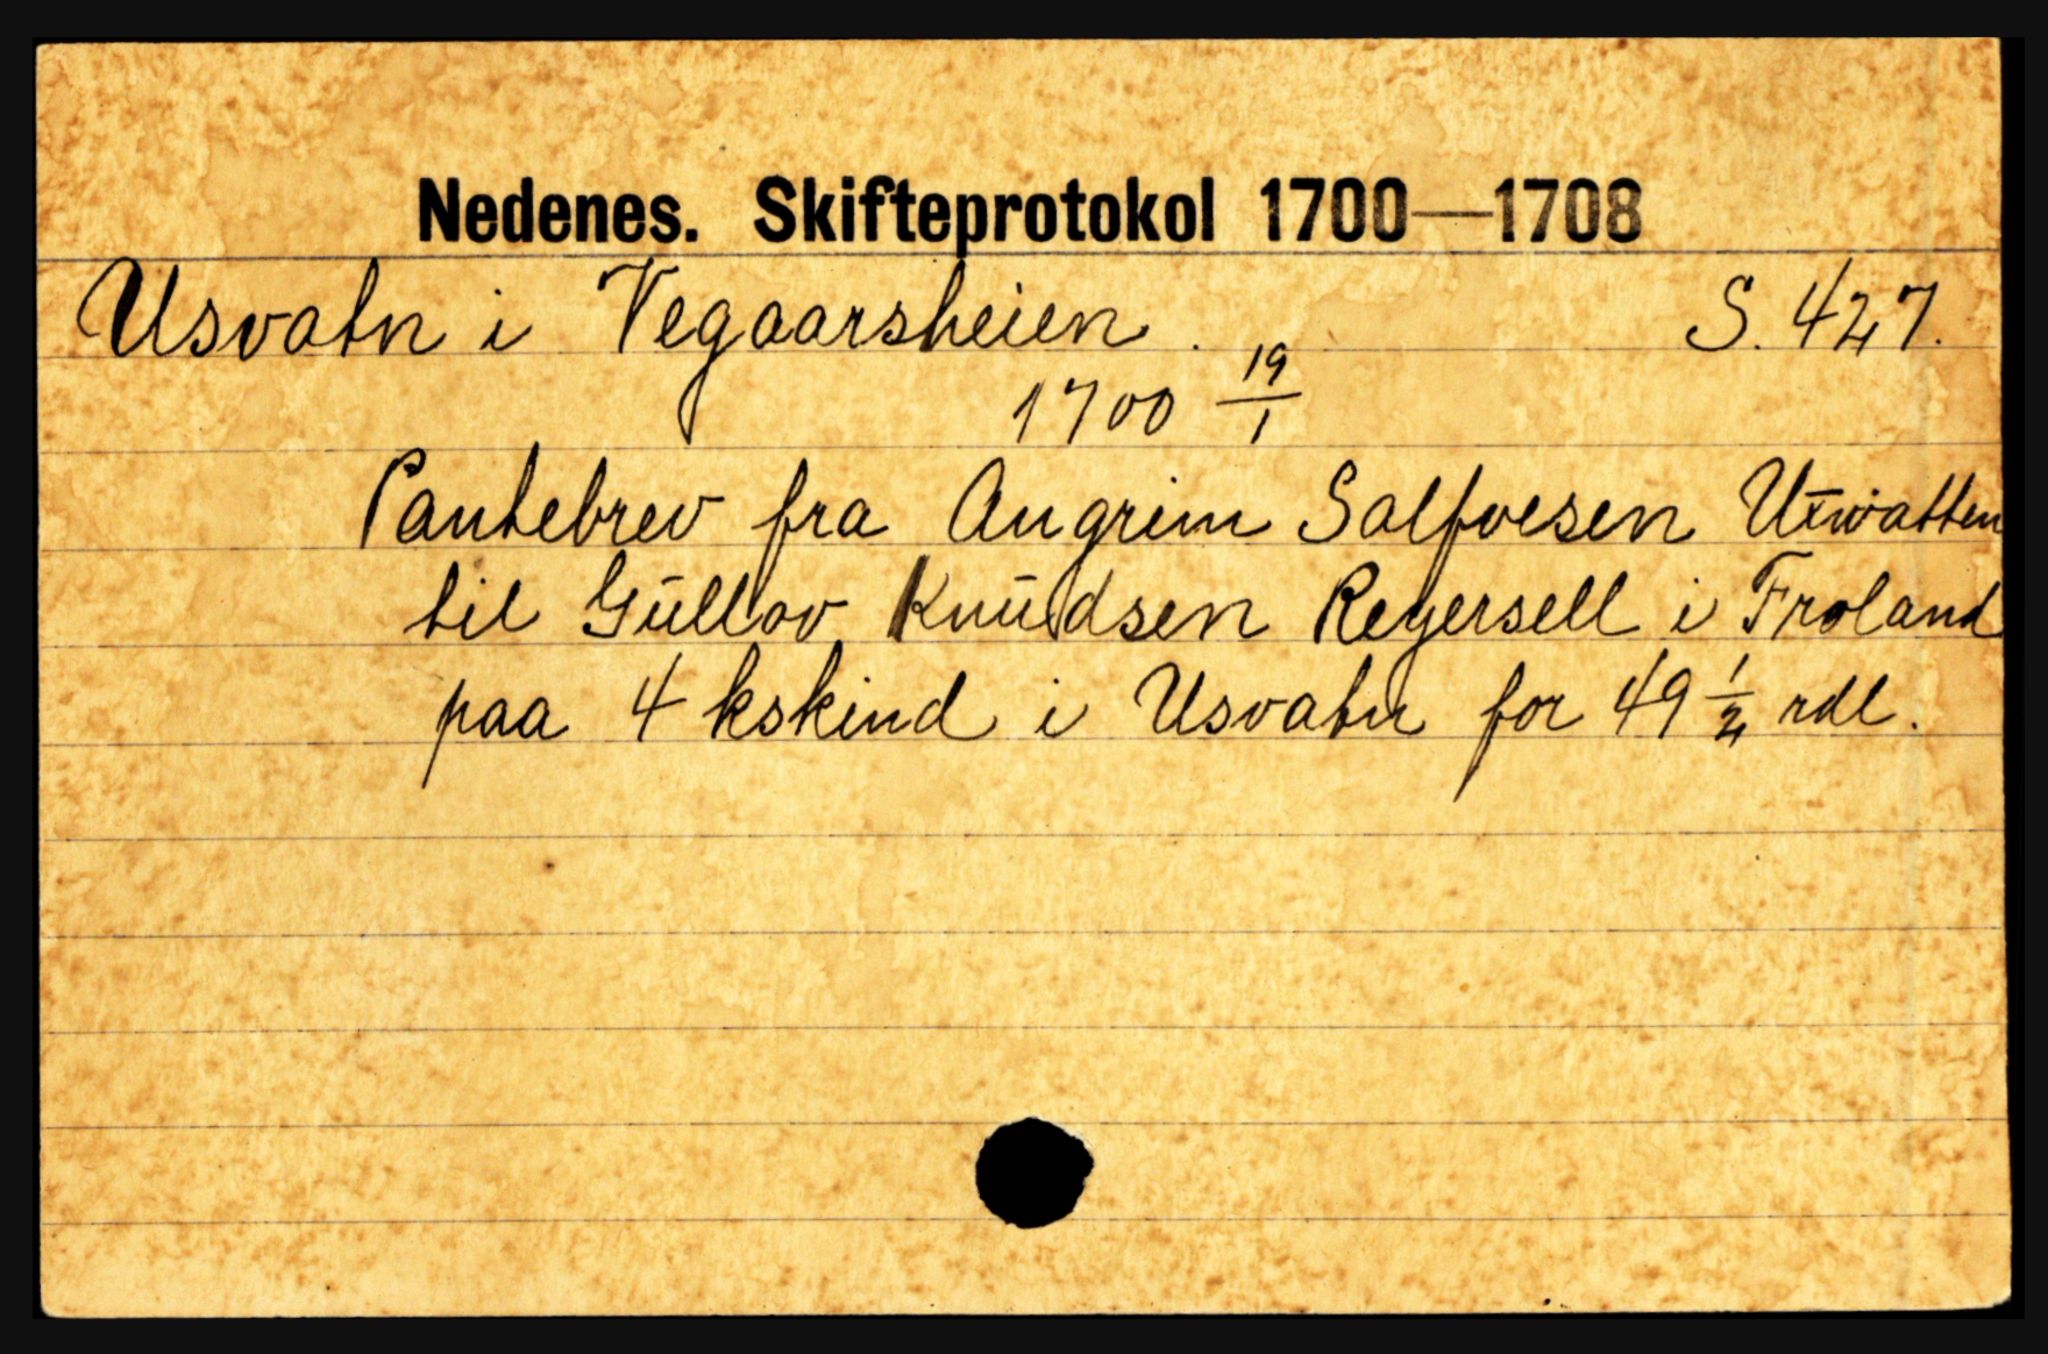 Nedenes. Skifteprotokol 1700—1708
Usvatn i Vegaarsheien. S. 427.
1700 19/1
Pantebrev fra Angrim Salfvesen
til Güllov Knüdsen Reyersell i Froland
paa 4 kskind i Usvatn for 49 1/2 rdl.